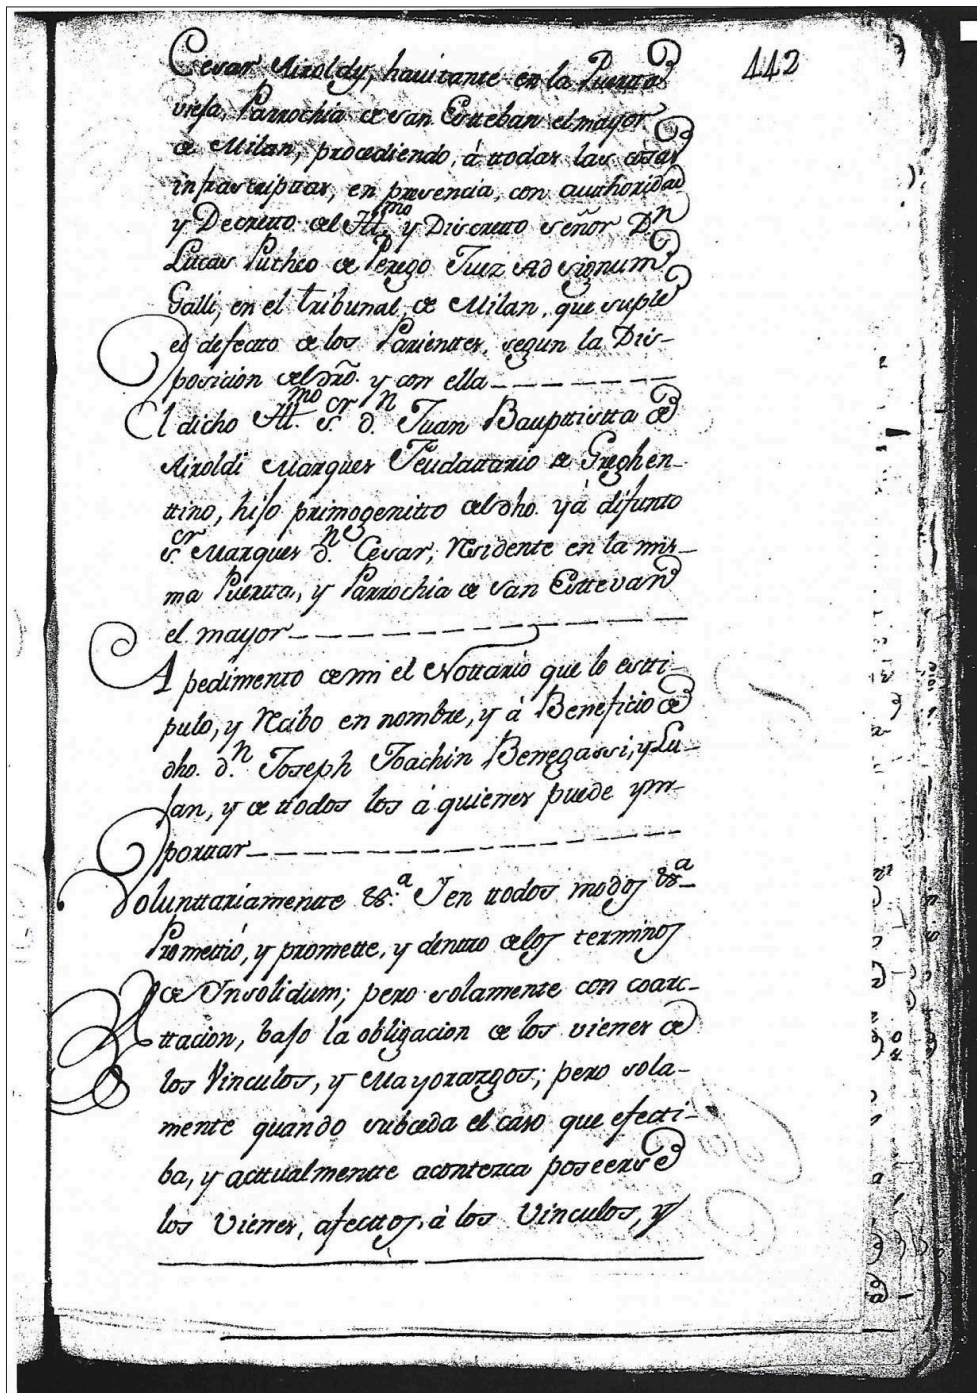 112
Cesar Airoldy, havitante en la Puertta
viefa, Parrochia de san Esteban el mayor
de Milan, procediendo, à ttodas las cosas
infrascripttas, en presencia, con authoridad
y Decretto del Ill.mo y Discretto Señor D.n
Lucas Putheo de Perego Juez Ad signum
Galli, en el tribunal, de Milan, que suple
el defecto de los Parienttes, segun la Dis-
posicion del dro. y con ella
El dicho Ill.mo s.or d.n Juan Bauptistta de
Airoldi Marques Feudattario de Greghen-
ttino, hijo primogenitto del dho. yà difunto
s.or Marques d.n Cesar, Residente en la mis-
ma Puertta, y Parrochia de san Esttevan
el mayor
A pedimento de mi el Nottario que lo estti-
pulo, y Recibo en nombre, y à Beneficio de
dho. d.n Joseph Joachin Benegassi, y Lu-
jan, y de ttodos los à quienes puede ym-
porttar
Voluntariamentte &.a Y en ttodos modos &.a
Promettió, y promette, y dentro delos terminos
de Ynsolidum; pero solamente con coarc-
ttacion, bajo la obligacion de los vienes de
los Vinculos, y Mayorazgos; pero sola-
mente quando subceda el caso que efecti-
ba, y acttualmentte acontezca poseerse
los Vienes, afecttos, à los Vinculos, y